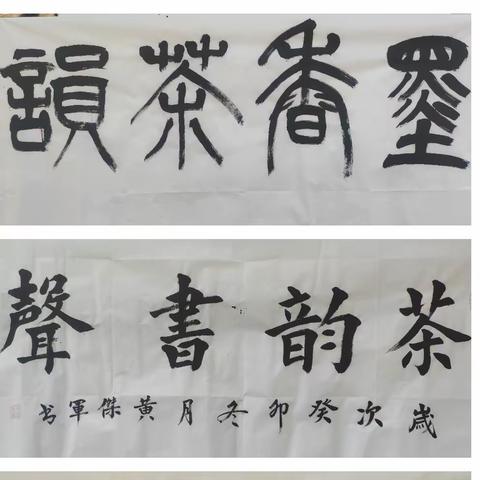 墨香茶韻
茶韵書聲
歲次癸卯冬月黄傑軍书